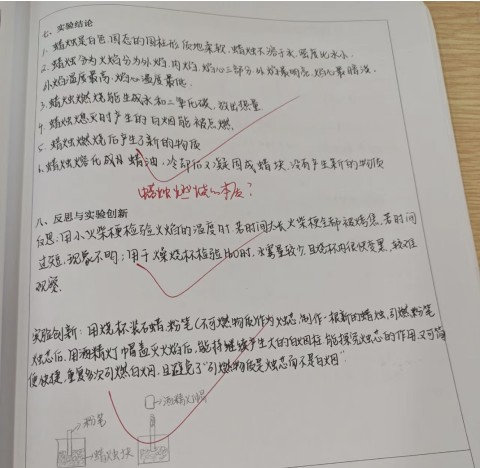 七、实验结论
1. 蜡烛是白色、固态的圆柱形,质地柔软,蜡烛不溶于水,密度比水小.
2. 蜡烛分为火焰分为外焰,内焰,焰心三部分,外焰最明亮,焰心最暗淡,
外焰温度最高,焰心温度最低.
3. 蜡烛燃烧能生成水和二氧化碳,放出热量
4. 蜡烛熄灭时产生的白烟能被点燃.
5. 蜡烛燃烧后产生了新的物质
6. 蜡烛熔化成蜡油,冷却后又凝固成蜡块,没有产生新的物质
蜡烛燃烧的本质?
八、反思与实验创新
反思:用小火柴梗检验火焰的温度时,若时间太长火柴梗全部被烤焦,若时间
过短,现象不明;用干燥烧杯检验H2O时,水雾量较少,且烧杯内很快变黑,较难
观察.
实验创新:用烧杯装石蜡,粉笔(不可燃物质)作为烛芯,制作一根新的蜡烛,引燃粉笔
烛芯后,用酒精灯帽盖灭火焰后,能持续产生大的白烟柱,能探究烛芯的作用,又可简
便快捷,重复多次引燃白烟,且避免了“引燃物质是烛芯而不是白烟”
酒精灯帽
粉笔
蜡烛块